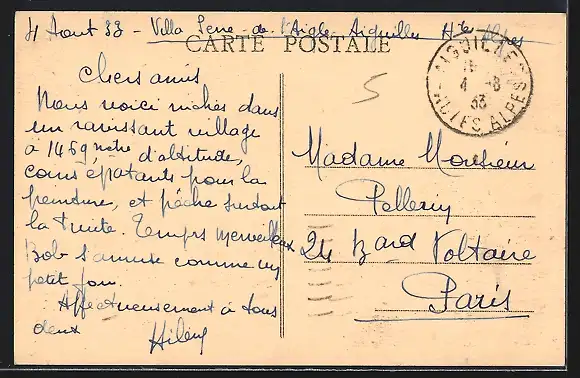 4 Aout 33 - Villa Serre-de l'Aigle Aiguilles Htes Alpes
CARTE POSTALE
Chers amis
Nous voici nichés dans
un ravissant village
à 1469 mètre d'altitude,
coins épatants pour la
peinture, et pêche surtout
la truite. Temps merveilleux
Bob s'amuse comme un
petit fou.
Affectueusement à tous
deux
5
AIGUILLES
4 -8
33
HAUTES ALPES
Madame Monsieur
Pellerin
24 Bard Voltaire
Paris